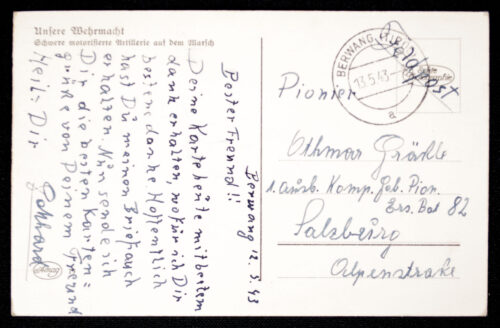 Unsere Wehrmacht
Schwere motorisierte Artillerie auf dem Marsch
Berwang 12.5.43
Bester Freund!!
Deine Karte heute mit bestem
dank erhalten, wofür ich Dir
bestens danke. Hoffentlich
hast Du meinen Brief auch
erhalten. Nun sende ich
Dir die besten Karten=
grüße von Deinem Freund
Gebhard
Heil= Dir
BERWANG
13.5.43
a
Feldpost
Pionier
Othmar
1. Ausb. Komp. Geb. Pion.
Ers. Bat 82
Salzburg
Alpenstraße